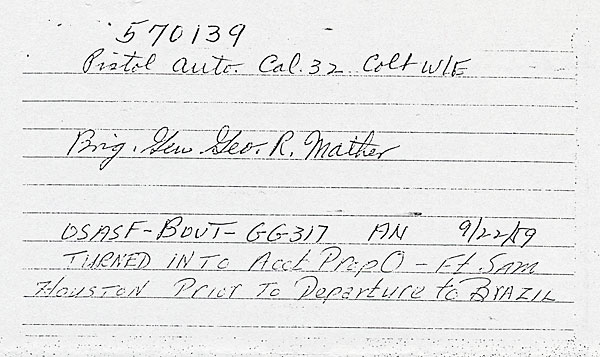 570139
Pistol auto. Cal. 32 Colt W/E
Brig. Gen Geo. R. Mather
OSASF-BOUT-GG-317 AN 9/22/59
TURNED INTO Acct Prop O - Ft. Sam
HOUSTON Prior To Departure to BRAZIL